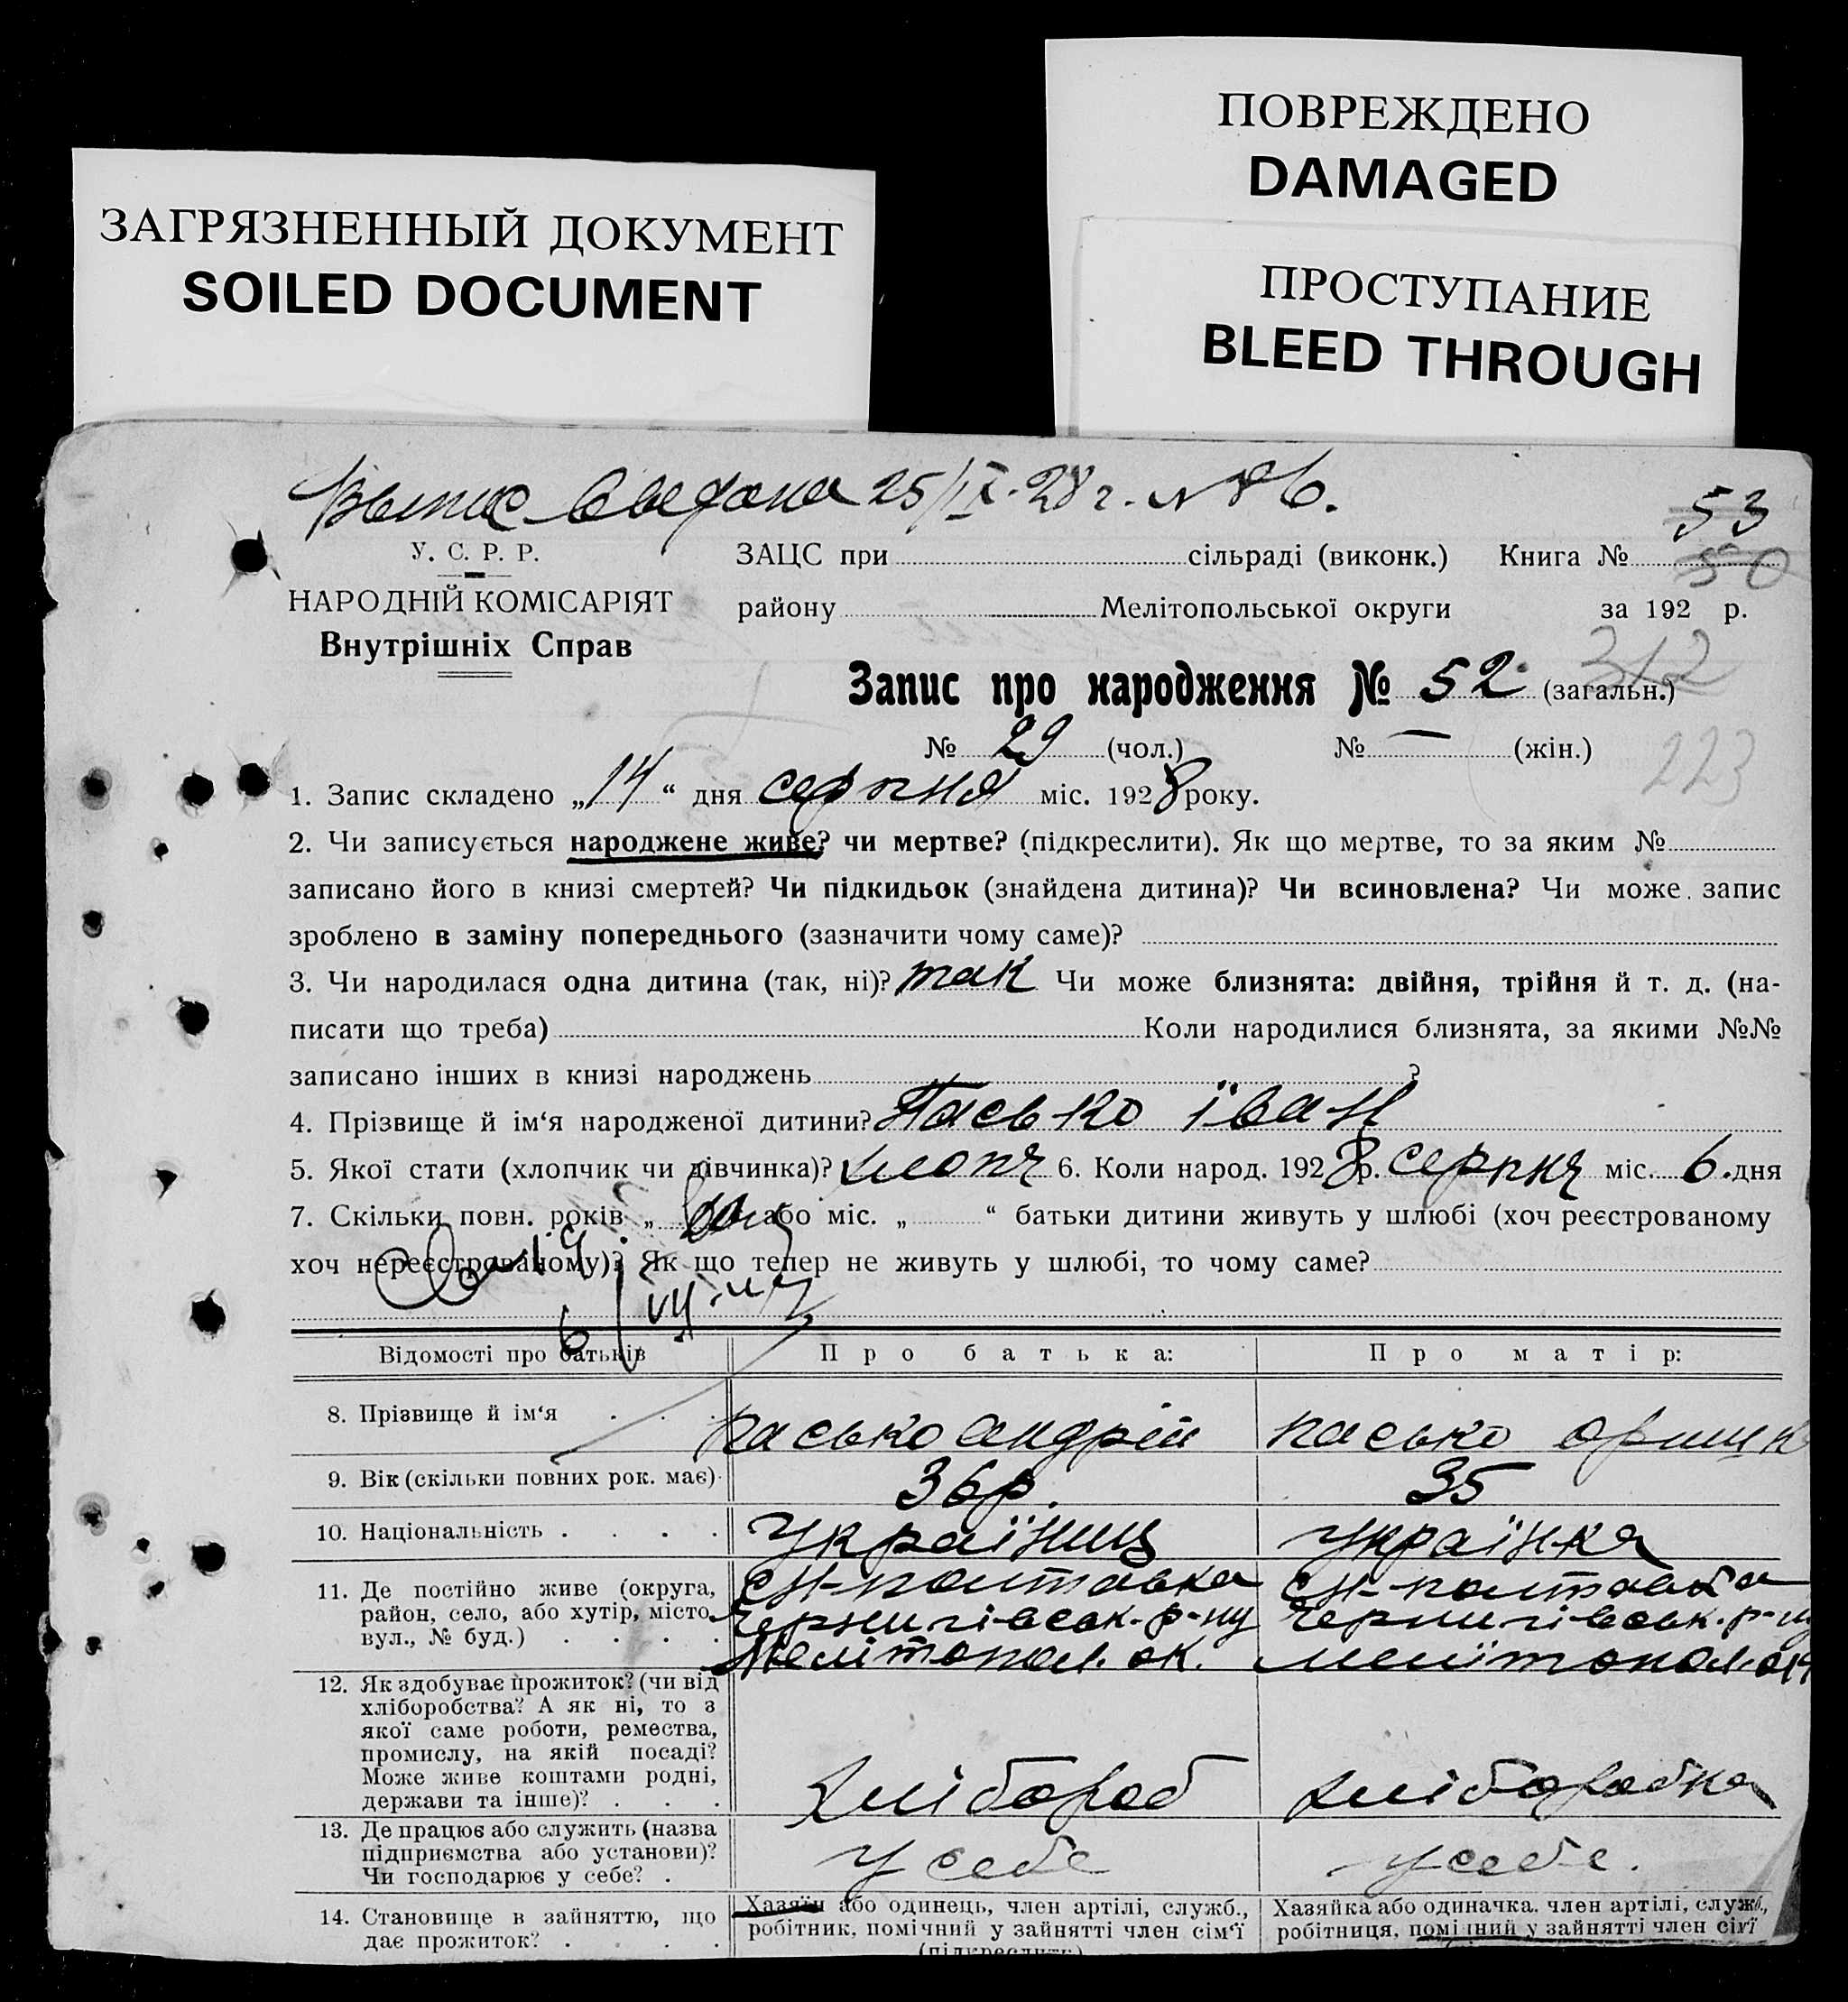 ПОВРЕЖДЕНО
DAMAGED
ЗАГРЯЗНЕННЫЙ ДОКУМЕНТ
SOILED DOCUMENT
ПРОСТУПАНИЕ
BLEED THROUGH
25/IX-28 г. № 86.
53
У. С. Р. Р.
ЗАЦС при сільраді (виконк.) Книга № 50
НАРОДНІЙ КОМІСАРІЯТ
району Мелітопольської округи за 192 р.
Внутрішніх Справ
312
Запис про народження № 52 (загальн.)
№ 29 (чол.) № — (жін.)
223
1. Запис складено „14“ дня серпня міс. 1928 року.
2. Чи записується народжене живе? чи мертве? (підкреслити). Як що мертве, то за яким №
записано його в книзі смертей? Чи підкидьок (знайдена дитина)? Чи всиновлена? Чи може запис
зроблено в заміну попереднього (зазначити чому саме)?
3. Чи народилася одна дитина (так, ні)? так Чи може близнята: двійня, трійня й т. д. (на-
писати що треба) Коли народилися близнята, за якими №№
записано інших в книзі народжень ?
4. Прізвище й ім‘я народженої дитини? Пасько Іван
5. Якої стати (хлопчик чи дівчинка)? хлопч 6. Коли народ. 1928 р. серпня міс. 6. дня
7. Скільки повн. років „ або міс. „ “ батьки дитини живуть у шлюбі (хоч реєстрованому
хоч нереєстрованому)? Як що тепер не живуть у шлюбі, то чому саме?
Відомості про батьків
Про батька:
Про матір:
8. Прізвище й ім‘я . . .
пасько андрій
пасько
9. Вік (скільки повних рок. має)
36 р.
35
10. Національність . . . .
Україниц
Українка
11. Де постійно живе (округа,
район, село, або хутір, місто,
вул., № буд.) . . . .
СН-полтавка
Чернигівськ. р-ну
Мелітопол. ок.
СН-полтавка
Чернигівськ. р-ну
мелітопол. ок
12. Як здобуває прожиток? (чи від
хліборобства? А як ні, то з
якої саме роботи, ремества,
промислу, на якій посаді?
Може живе коштами родні,
держави та інше)? . . .
Хлібороб
хліборобка
13. Де працює або служить (назва
підприємства або установи)?
Чи господарює у себе? .
У себе
у себе.
14. Становище в зайняттю, що
дає прожиток? . . . .
Хазяїн або одинець, член артілі, служб.,
робітник, помічний у зайнятті член сім‘ї
(підкреслити)
Хазяйка або одиначка. член артілі, служб.,
робітниця, помічний у зайнятті член сім‘ї